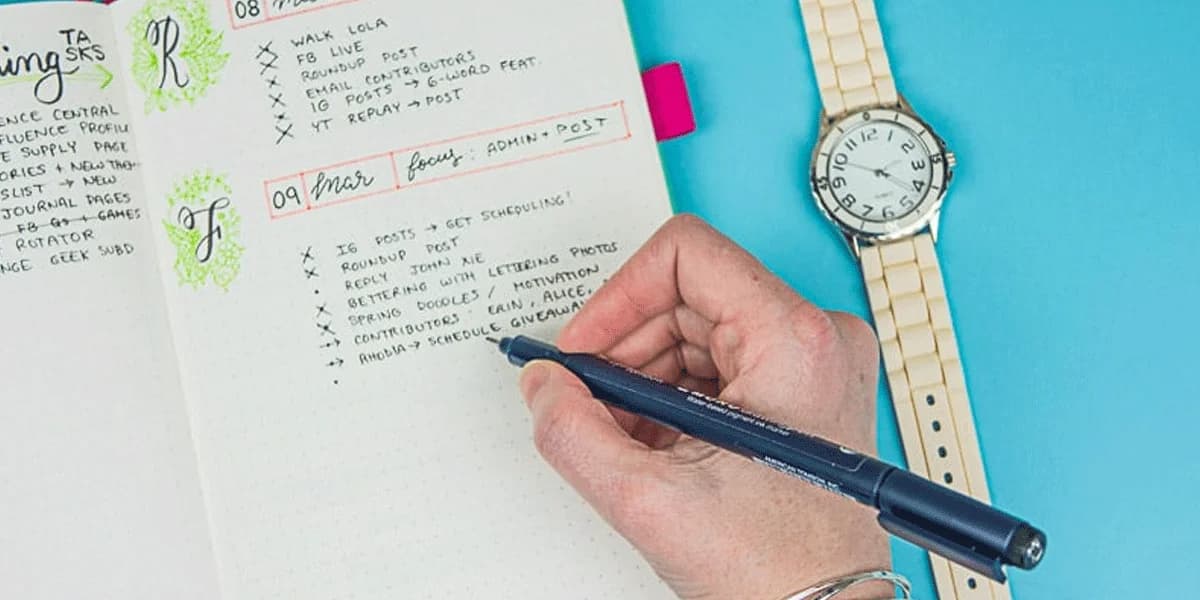 ing TA
SKS
ENCE CENTRAL
FLUENCE PROFILI
E SUPPLY PAGE
ORIES + NEW
SLIST → NEW
JOURNAL PAGES
FB Gs + GAMES
ROTATOR
NGE GEEK SUBD
R
08
X WALK LOLA
X FB LIVE
X ROUNDUP POST
X EMAIL CONTRIBUTORS
X IG POSTS → 6-WORD FEAT.
X YT REPLAY → POST
F
09 Mar focus: ADMIN + POST
X IG POSTS → GET SCHEDULING!
X ROUNDUP POST
• REPLY JOHN NE
X BETTERING WITH LETTERING PHOTOS
X SPRING DOODLES / MOTIVATION
→ CONTRIBUTORS: ERIN, ALICE,
→ RHODIA → SCHEDULE GIVEAWA
•
12
11
10
9
8
7
6
5
4
3
2
Water-based pigment ink marker